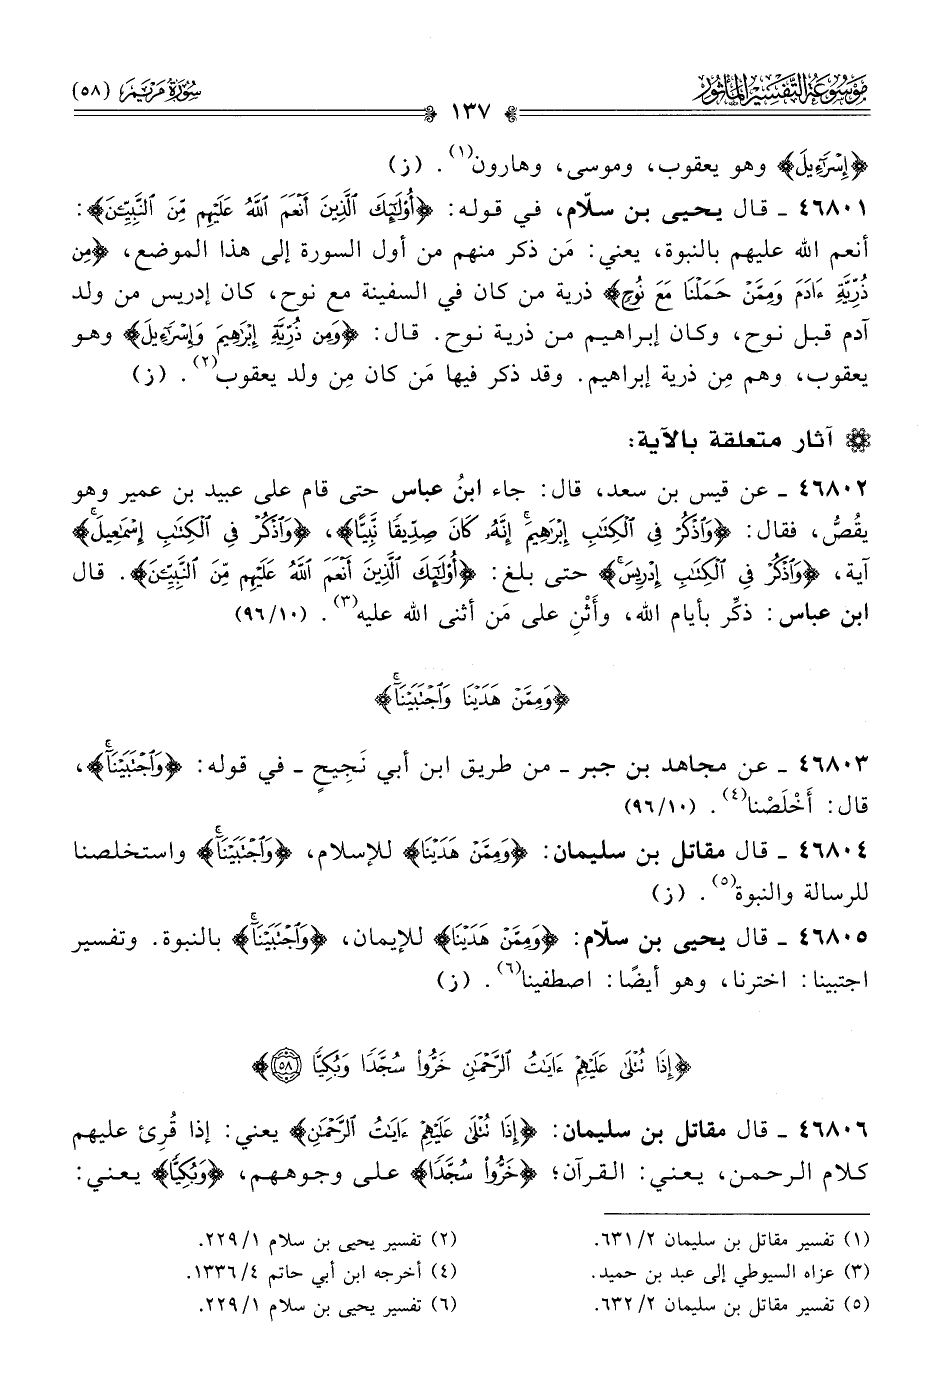 موسوعة التفسير المأثور
سورة مريم (٥٨)
١٣٧
﴿إِسْرَٰٓءِيلَ﴾ وهو يعقوب، وموسى، وهارون(١). (ز)
٤٦٨٠١ ـ قال يحيى بن سلّام، في قوله: ﴿أُوْلَٰٓئِكَ ٱلَّذِينَ أَنْعَمَ ٱللَّهُ عَلَيْهِم مِّنَ ٱلنَّبِيِّـۧنَ﴾:
أنعم الله عليهم بالنبوة، يعني: مَن ذكر منهم من أول السورة إلى هذا الموضع، ﴿مِن
ذُرِّيَّةِ ءَادَمَ وَمِمَّنْ حَمَلْنَا مَعَ نُوحٍ﴾ ذرية من كان في السفينة مع نوح، كان إدريس من ولد
آدم قبل نوح، وكان إبراهيم من ذرية نوح. قال: ﴿وَمِن ذُرِّيَّةِ إِبْرَٰهِيمَ وَإِسْرَٰٓءِيلَ﴾ وهو
يعقوب، وهم مِن ذرية إبراهيم. وقد ذكر فيها مَن كان مِن ولد يعقوب(٢). (ز)
آثار متعلقة بالآية:
٤٦٨٠٢ ـ عن قيس بن سعد، قال: جاء ابنُ عباس حتى قام على عبيد بن عمير وهو
يقُصُّ، فقال: ﴿وَٱذْكُرْ فِى ٱلْكِتَٰبِ إِبْرَٰهِيمَ ۚ إِنَّهُۥ كَانَ صِدِّيقًا نَّبِيًّا﴾، ﴿وَٱذْكُرْ فِى ٱلْكِتَٰبِ إِسْمَٰعِيلَ ۚ﴾
آية، ﴿وَٱذْكُرْ فِى ٱلْكِتَٰبِ إِدْرِيسَ ۚ﴾ حتى بلغ: ﴿أُوْلَٰٓئِكَ ٱلَّذِينَ أَنْعَمَ ٱللَّهُ عَلَيْهِم مِّنَ ٱلنَّبِيِّـۧنَ﴾. قال
ابن عباس: ذكِّر بأيام الله، وأَثْنِ على مَن أثنى الله عليه(٣). (٩٦/١٠)
﴿وَمِمَّنْ هَدَيْنَا وَٱجْتَبَيْنَآ ۚ﴾
٤٦٨٠٣ ـ عن مجاهد بن جبر ـ من طريق ابن أبي نَجِيحٍ ـ في قوله: ﴿وَٱجْتَبَيْنَآ ۚ﴾،
قال: أَخْلَصْنا(٤). (٩٦/١٠)
٤٦٨٠٤ ـ قال مقاتل بن سليمان: ﴿وَمِمَّنْ هَدَيْنَا﴾ للإسلام، ﴿وَٱجْتَبَيْنَآ ۚ﴾ واستخلصنا
للرسالة والنبوة(٥). (ز)
٤٦٨٠٥ ـ قال يحيى بن سلّام: ﴿وَمِمَّنْ هَدَيْنَا﴾ للإيمان، ﴿وَٱجْتَبَيْنَآ ۚ﴾ بالنبوة. وتفسير
اجتبينا: اخترنا، وهو أيضًا: اصطفينا(٦). (ز)
﴿إِذَا تُتْلَىٰ عَلَيْهِمْ ءَايَٰتُ ٱلرَّحْمَٰنِ خَرُّواْ سُجَّدًا وَبُكِيًّا ٥٨﴾
٤٦٨٠٦ ـ قال مقاتل بن سليمان: ﴿إِذَا تُتْلَىٰ عَلَيْهِمْ ءَايَٰتُ ٱلرَّحْمَٰنِ﴾ يعني: إذا قُرِئ عليهم
كلام الرحمن، يعني: القرآن؛ ﴿خَرُّواْ سُجَّدًا﴾ على وجوههم، ﴿وَبُكِيًّا﴾ يعني:
(١) تفسير مقاتل بن سليمان ٢/ ٦٣١.
(٢) تفسير يحيى بن سلام ١/ ٢٢٩.
(٣) عزاه السيوطي إلى عبد بن حميد.
(٤) أخرجه ابن أبي حاتم ٤/ ١٣٣٦.
(٥) تفسير مقاتل بن سليمان ٢/ ٦٣٢.
(٦) تفسير يحيى بن سلام ١/ ٢٢٩.